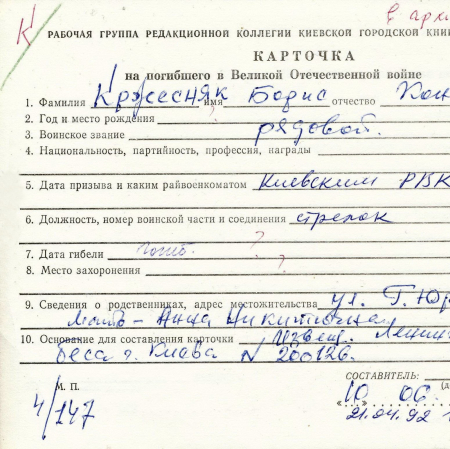 К
в архи
РАБОЧАЯ ГРУППА РЕДАКЦИОННОЙ КОЛЛЕГИИ КИЕВСКОЙ ГОРОДСКОЙ КНИ
КАРТОЧКА
на погибшего в Великой Отечественной войне
1. Фамилия Кржесняк имя Борис отчество Кон
2. Год и место рождения ?
3. Воинское звание рядовой.
4. Национальность, партийность, профессия, награды
5. Дата призыва и каким райвоенкоматом Киевским РВК
6. Должность, номер воинской части и соединения стрелок
7. Дата гибели погиб. ?
8. Место захоронения ?
9. Сведения о родственниках, адрес местожительства ул. Г. Юр
Мать - Анна Никитична
10. Основание для составления карточки Извещ. Ленин
беса г. Киева N 200126.
СОСТАВИТЕЛЬ:
М. П.
4/147
"10" 06.
21.04.92